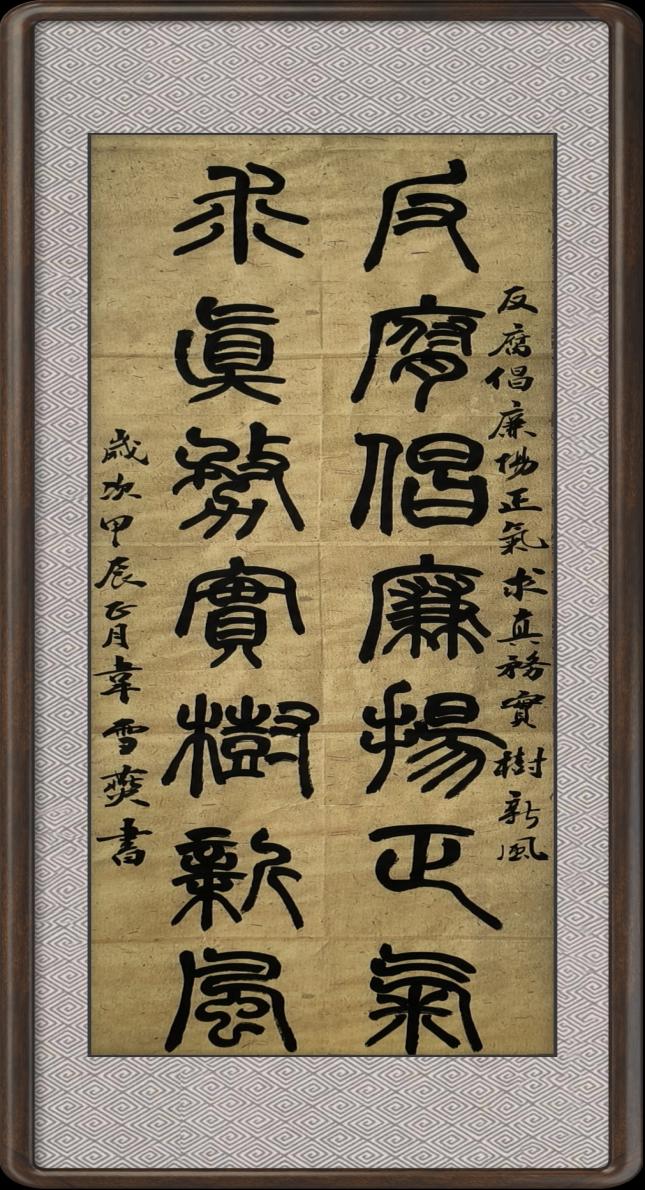 反腐倡廉揚正氣求真務實樹新風
反腐倡廉揚正氣
求眞務實樹新風
歲次甲辰正月韋雪爽書